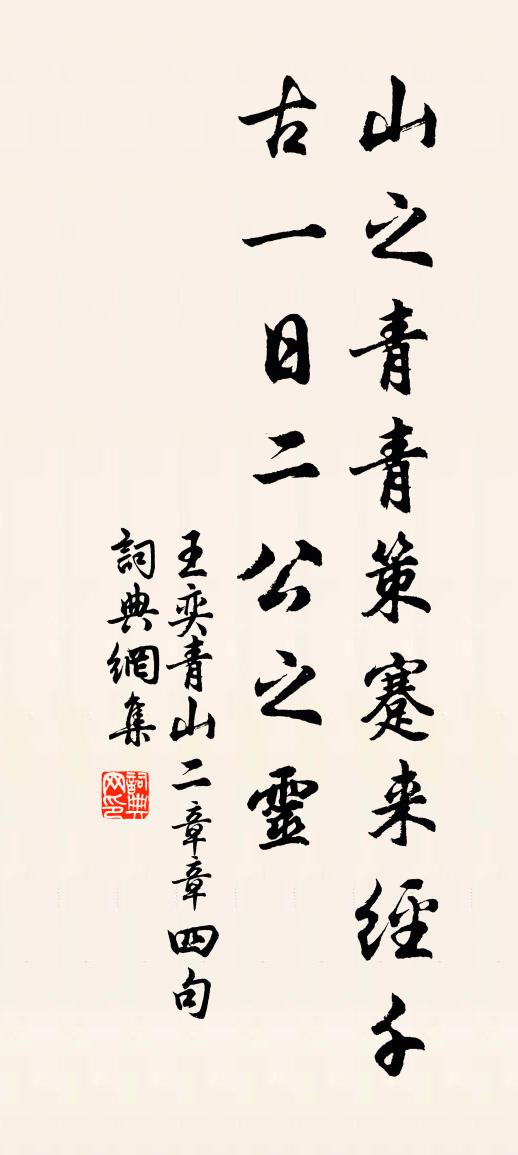 山之青青策蹇来經千
古一日二公之靈
王奕青山二章章四句
詞典網集
詞典網印